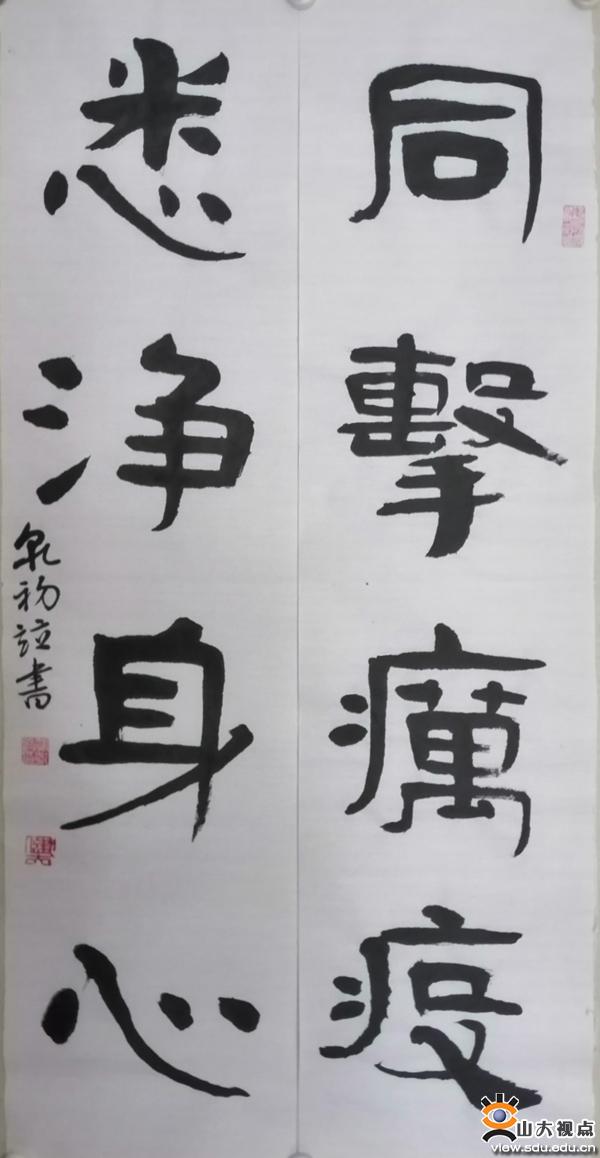 同擊癘疫
悉浄身心
乾初誼書
山大视点
view.sdu.edu.cn